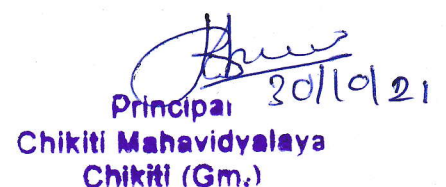 30/10/21
Principal
Chikiti Mahavidyalaya
Chikiti (Gm.)